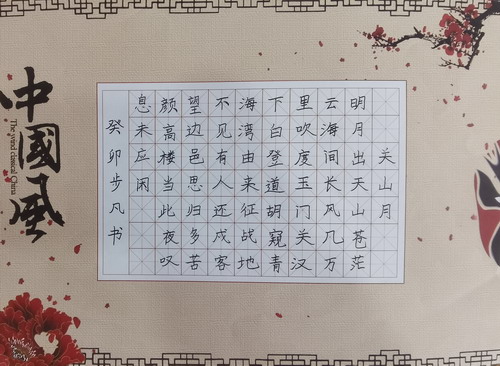 关山月
明月出天山苍茫
云海间长风几万
里吹度玉门关汉
下白登道胡窥青
海湾由来征战地
不见有人还戍客
望边邑思归多苦
颜高楼当此夜叹
息未应闲
癸卯步凡书
中國風
The wind classical China